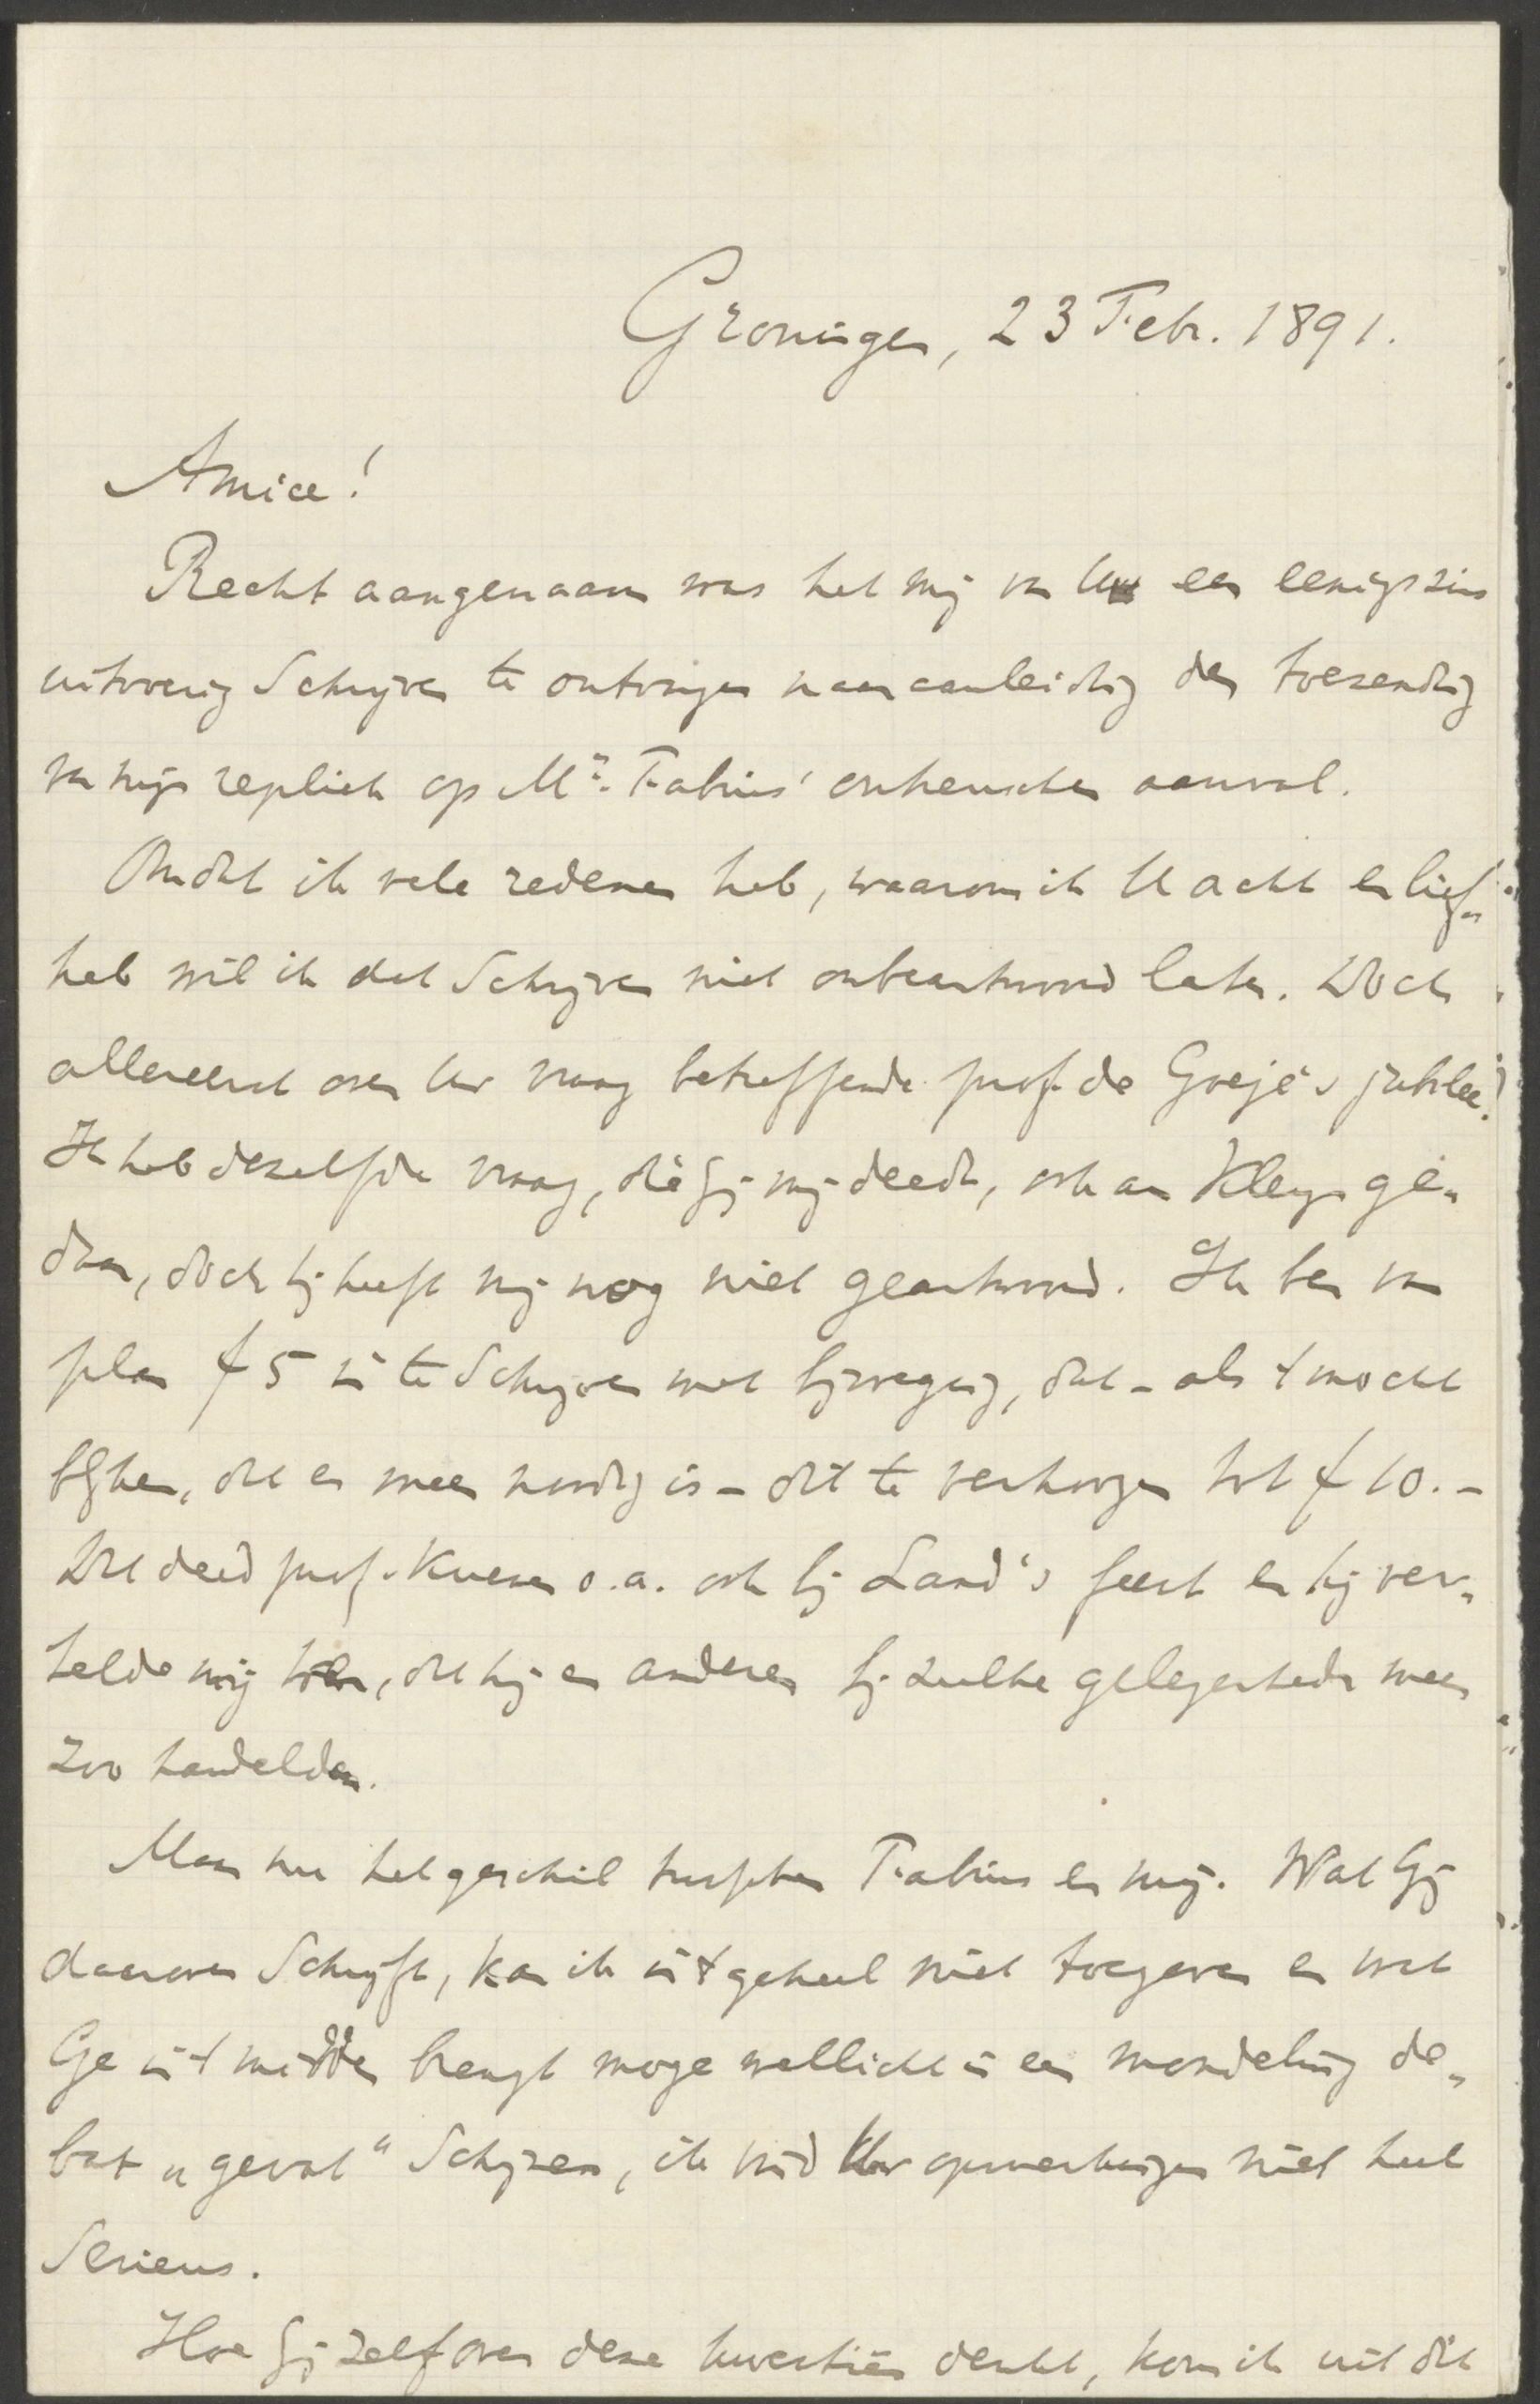 Groningen, 23 Febr. 1891.
Amice!
Recht aangenaam was het mij van U een eenigszins
uitvoerig schrijven te ontvangen naar aanleiding der toezending
van mijn repliek op Mr. Fabius' onheuschen aanval.
Omdat ik vele redenen heb, waarom ik U acht en lief-
heb wil ik dat schrijven niet onbeantwoord laten. Doch
allereerst over Uw vraag betreffende prof. de Goeje's jubilee.
Ik heb dezelfde vraag, die gij mij deedt, ook aan Kleyn ge-
daan, doch hij heeft mij nog niet geantwoord. Ik ben van
plan f 5 in te schrijven met bijvoeging, dat - als 't mocht
blijken, dat er meer noodig is - dit te verhoogen tot f 10.-
Dit deed prof. Kuenen o.a. ook bij Land's feest en hij ver-
telde mij toen, dat hij en anderen bij zulke gelegenheden meer
zoo handelden.
Maar nu het geschil tusschen Fabius en mij. Wat Gij
daarover schrijft, kan ik in 't geheel niet toegeven en wat
Ge in 't midden brengt moge wellicht in een mondeling de-
bat „gevat" schijnen, ik vind Uw opmerkingen niet heel
serieus.
Hoe gij zelf over deze kwestiën denkt, kom ik uit dit